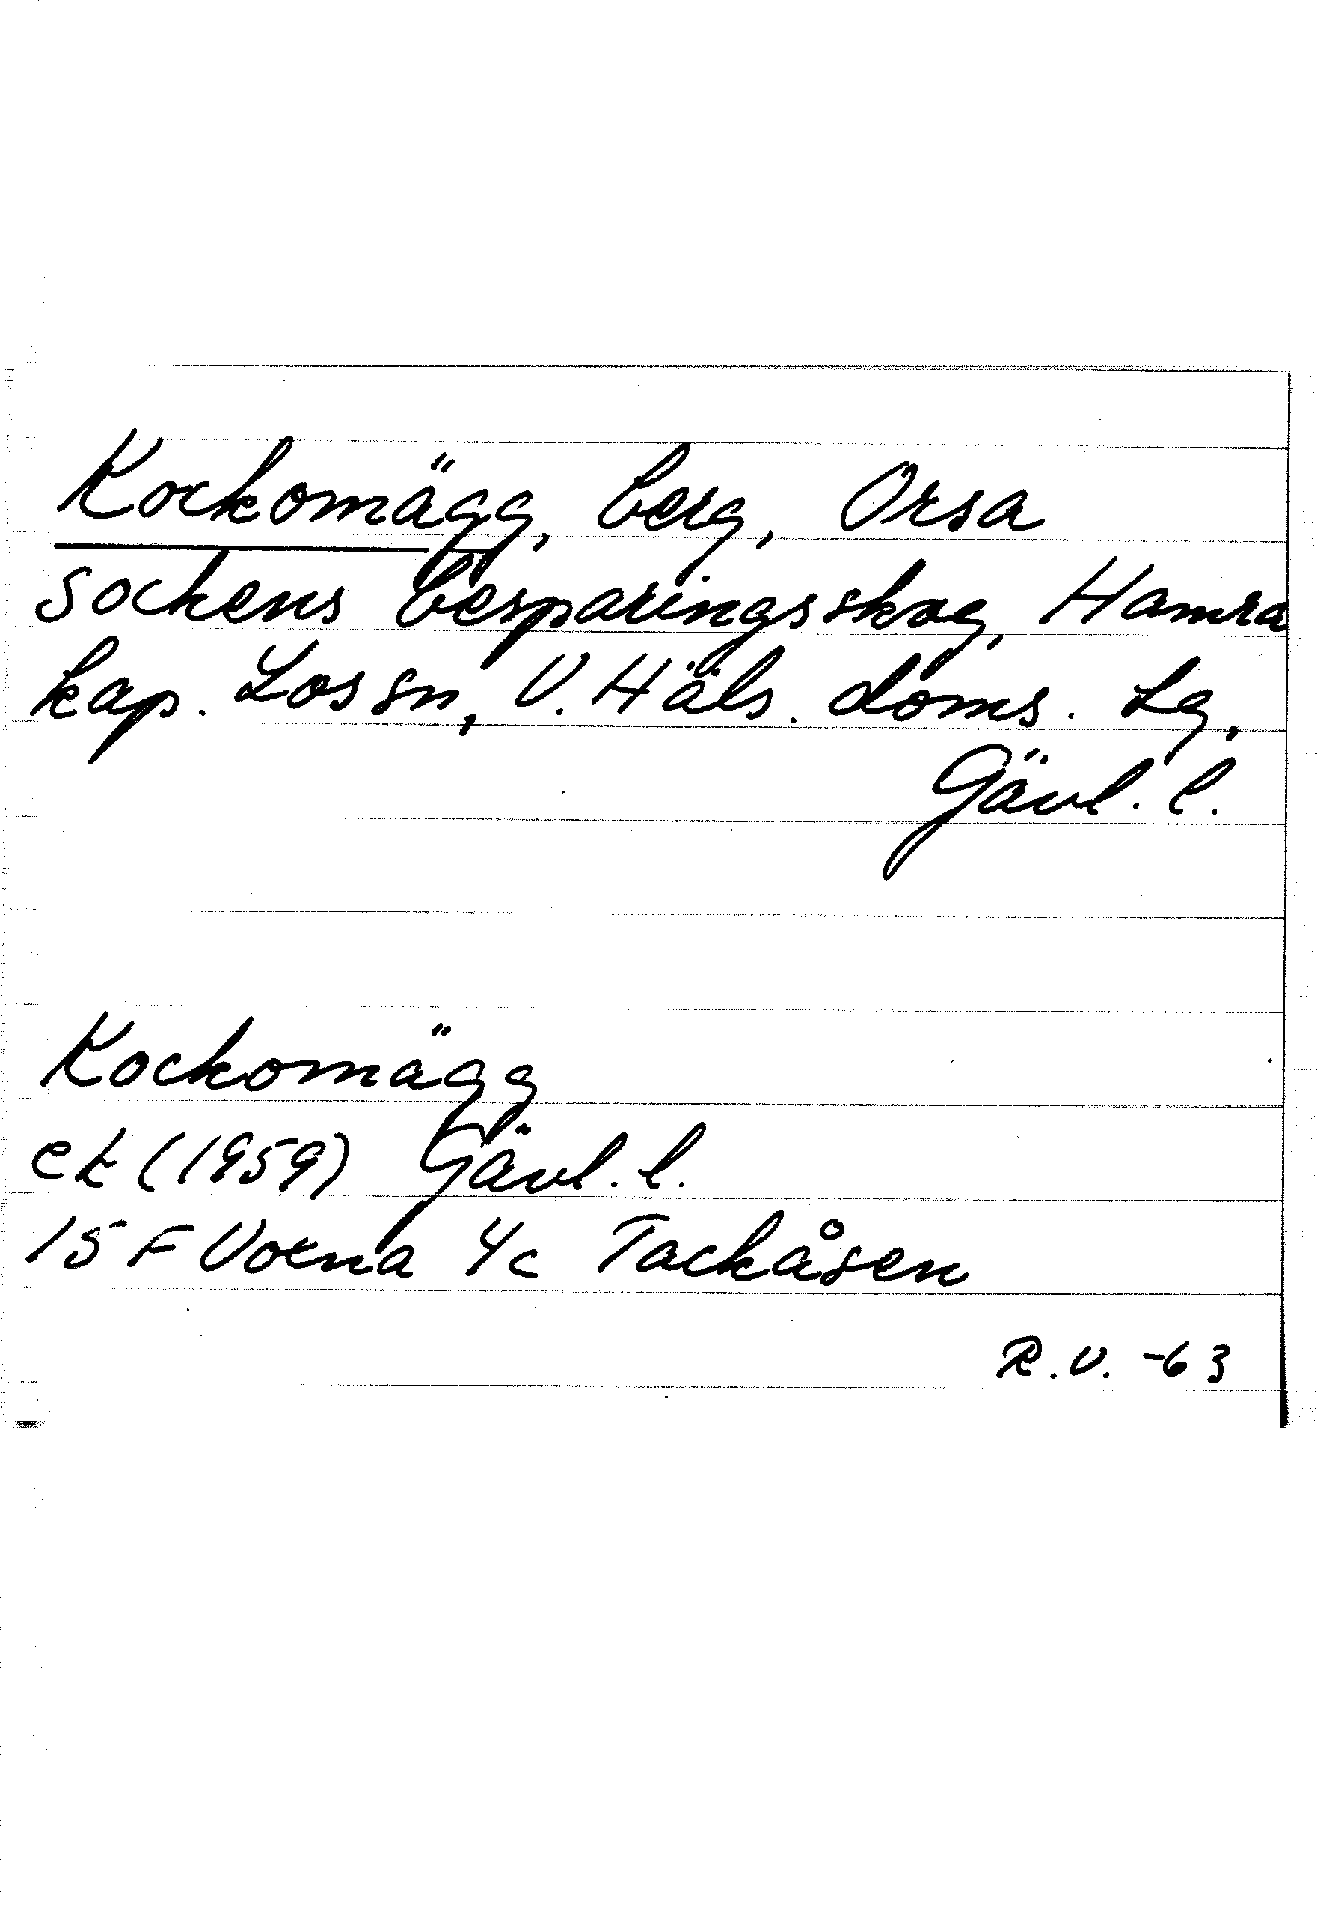 Kockomägg, berg, Orsa
sockens besparingsskog, Hamra
kap. Los sn, V. Häls. doms. Lg,
Gävl. l.
Kockomägg
ek (1959) Gävl. l.
15 F Voxna 4c Tackåsen
R.V. -63